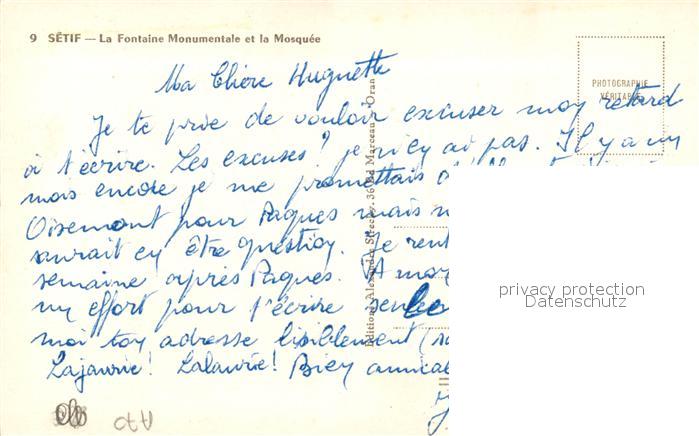 9 SÉTIF — La Fontaine Monumentale et la Mosquée
PHOTOGRAPHIE
VÉRITABLE
Ma Chère Huguette
Je te prie de vouloir excuser mon retard
à t'écrire. Les excuses? je n'en ai pas. Il y a un
mois encore je me promettais
Oisemont pour Pâques mais
saurait en être question. Je
semaine après Pâques.
un effort pour t'écrire
moi ton adresse lisiblement
Lajaurie! Lalaurie! Bien
Editions Alexandre
Marceau Oran
privacy protection
Datenschutz